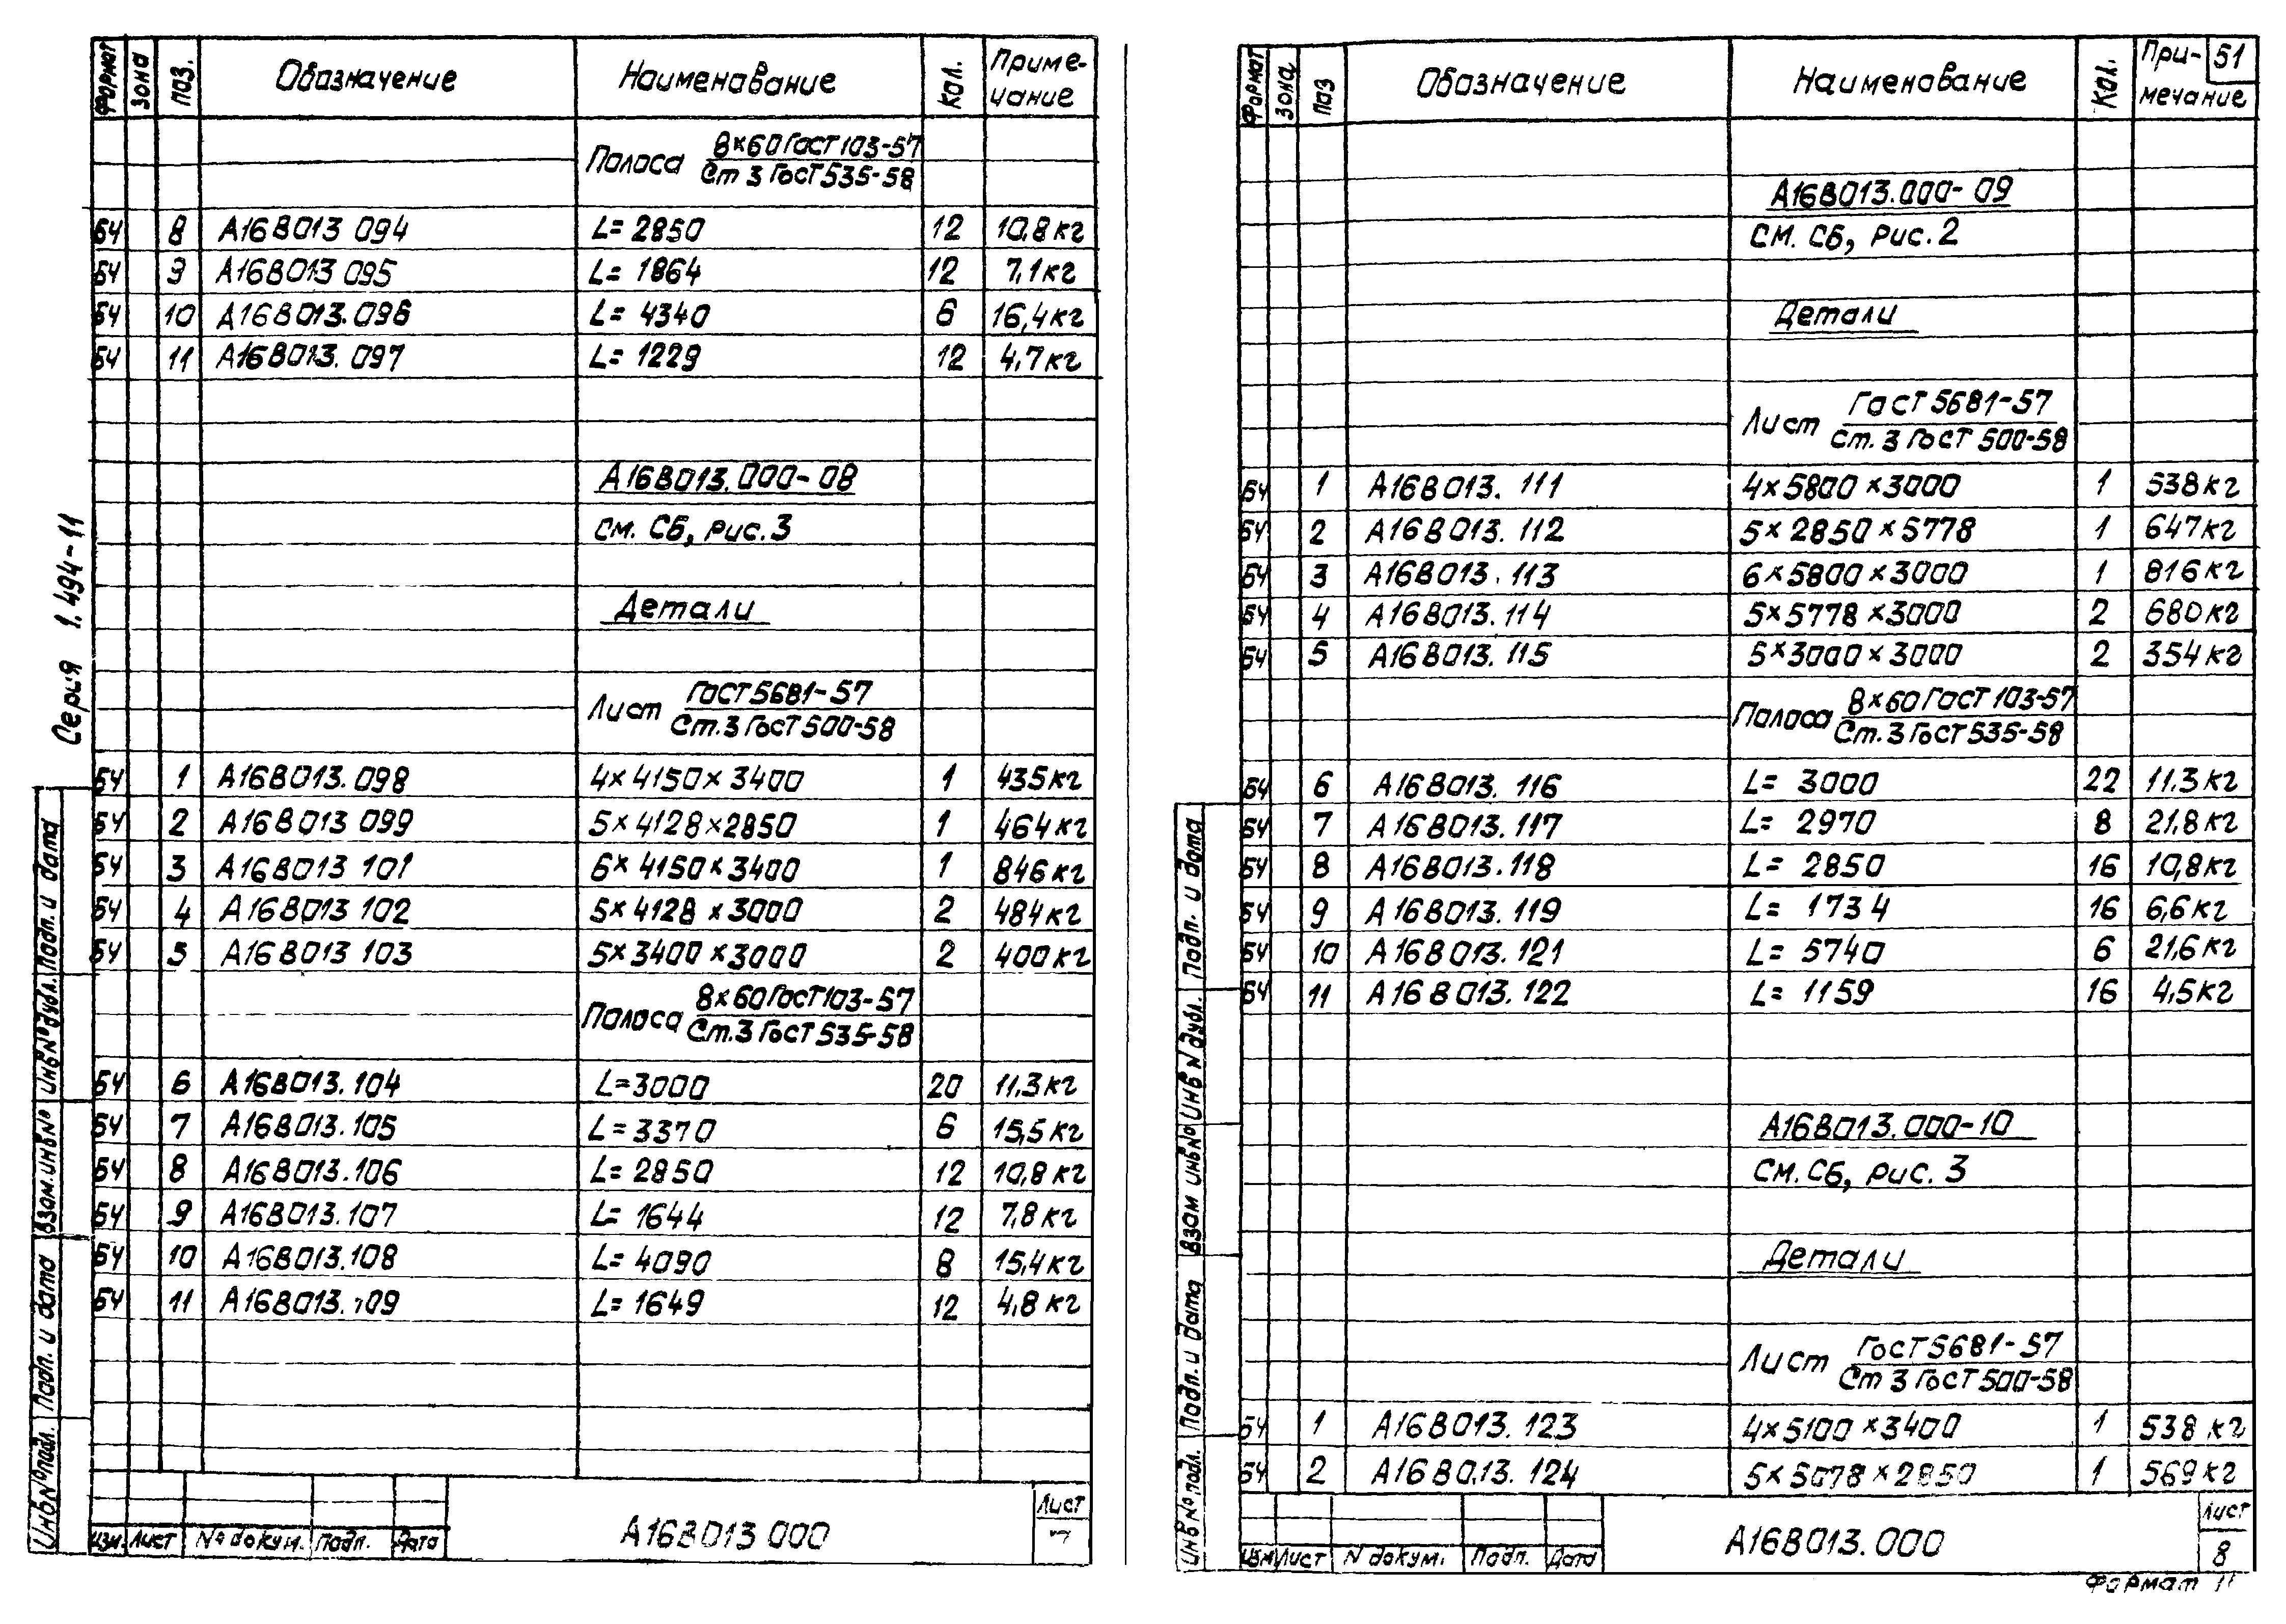 Формат Зона Поз. Обозначение Наименование Кол. Приме-
чание
Полоса 8×60 ГОСТ 103-57
Ст 3 ГОСТ 535-58
БЧ 8 А16В013 094 L= 2850 12 10,8 кг
БЧ 9 А16В013 095 L= 1864 12 7,1 кг
БЧ 10 А16В013.096 L= 4340 6 16,4 кг
БЧ 11 А16В013. 097 L= 1229 12 4,7 кг
А16В013.000-08
см. СБ, рис. 3
Детали
Лист ГОСТ 5681-57
Ст. 3 ГОСТ 500-58
БЧ 1 А16В013. 098 4×4150×3400 1 435 кг
БЧ 2 А16В013 099 5×4128×2850 1 464 кг
БЧ 3 А16В013 101 6×4150×3400 1 846 кг
БЧ 4 А16В013 102 5×4128×3000 2 484 кг
БЧ 5 А16В013 103 5×3400×3000 2 400 кг
Полоса 8×60 ГОСТ 103-57
Ст. 3 ГОСТ 535-58
БЧ 6 А16В013. 104 L=3000 20 11.3 кг
БЧ 7 А16В013.105 L=3370 6 15,5 кг
БЧ 8 А16В013.106 L= 2850 12 10,8 кг
БЧ 9 А16В013.107 L= 1644 12 7,8 кг
БЧ 10 А16В013.108 L= 4090 8 15,4 кг
БЧ 11 А16В013.109 L= 1649 12 4,8 кг
Серия 1.494-11
Инв № подл. Подп. и дата Взам. инв № Инв № дубл. Подп. и дата
Изм. Лист № докум. Подп. Дата
А16В013 000
Лист
7
Формат Зона Поз Обозначение Наименование Кол. При-
мечание
51
А16В013.000-09
см. СБ, рис. 2
Детали
Лист ГОСТ 5681-57
Ст. 3 ГОСТ 500-58
БЧ 1 А16В013. 111 4×5800×3000 1 538 кг
БЧ 2 А16В013. 112 5×2850×5778 1 647 кг
БЧ 3 А16В013. 113 6×5800×3000 1 816 кг
БЧ 4 А16В013. 114 5×5778×3000 2 680 кг
БЧ 5 А16В013. 115 5×3000×3000 2 354 кг
Полоса 8×60 ГОСТ 103-57
Ст. 3 ГОСТ 535-58
БЧ 6 А16В013. 116 L= 3000 22 11.3 кг
БЧ 7 А16В013.117 L= 2970 8 21,8 кг
БЧ 8 А16В013.118 L= 2850 16 10,8 кг
БЧ 9 А16В013.119 L= 1734 16 6,6 кг
БЧ 10 А16В013.121 L= 5740 6 21,6 кг
БЧ 11 А16В013.122 L= 1159 16 4,5 кг
А16В013.000-10
см. СБ, рис. 3
Детали
Лист ГОСТ 5681-57
Ст 3 ГОСТ 500-58
БЧ 1 А16В013. 123 4×5100×3400 1 538 кг
БЧ 2 А16В013. 124 5×5078×2850 1 569 кг
Инв № подл. Подп. и дата Взам инв № Инв № дубл. Подп. и дата
Изм Лист № докум. Подп. Дата
А16В013.000
Лист
8
Формат 11